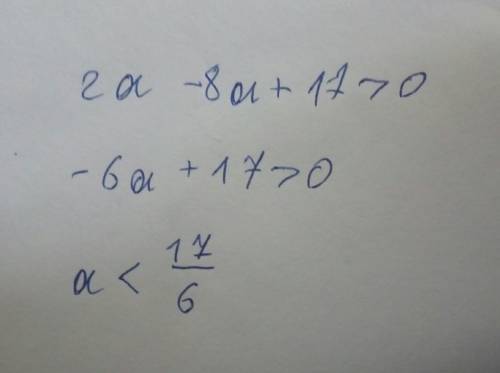 2a - 8a + 17 > 0
- 6a + 17 > 0
a < 17/6